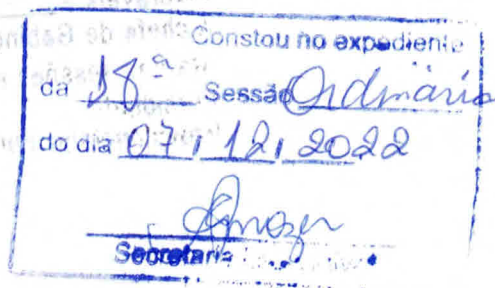 Constou no expediente
da 18ª Sessão Ordinária
do dia 07, 12, 2022
Secretaria